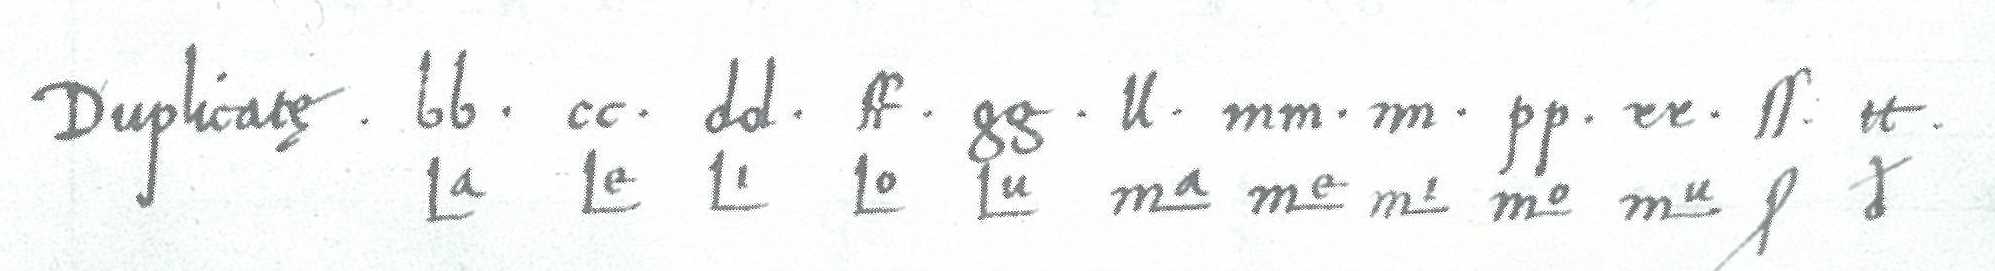 Duplicatę . bb . cc . dd . ff . gg . ll . mm . nn . pp . rr . ſſ . tt .
La Le Li Lo Lu ma me mi mo mu